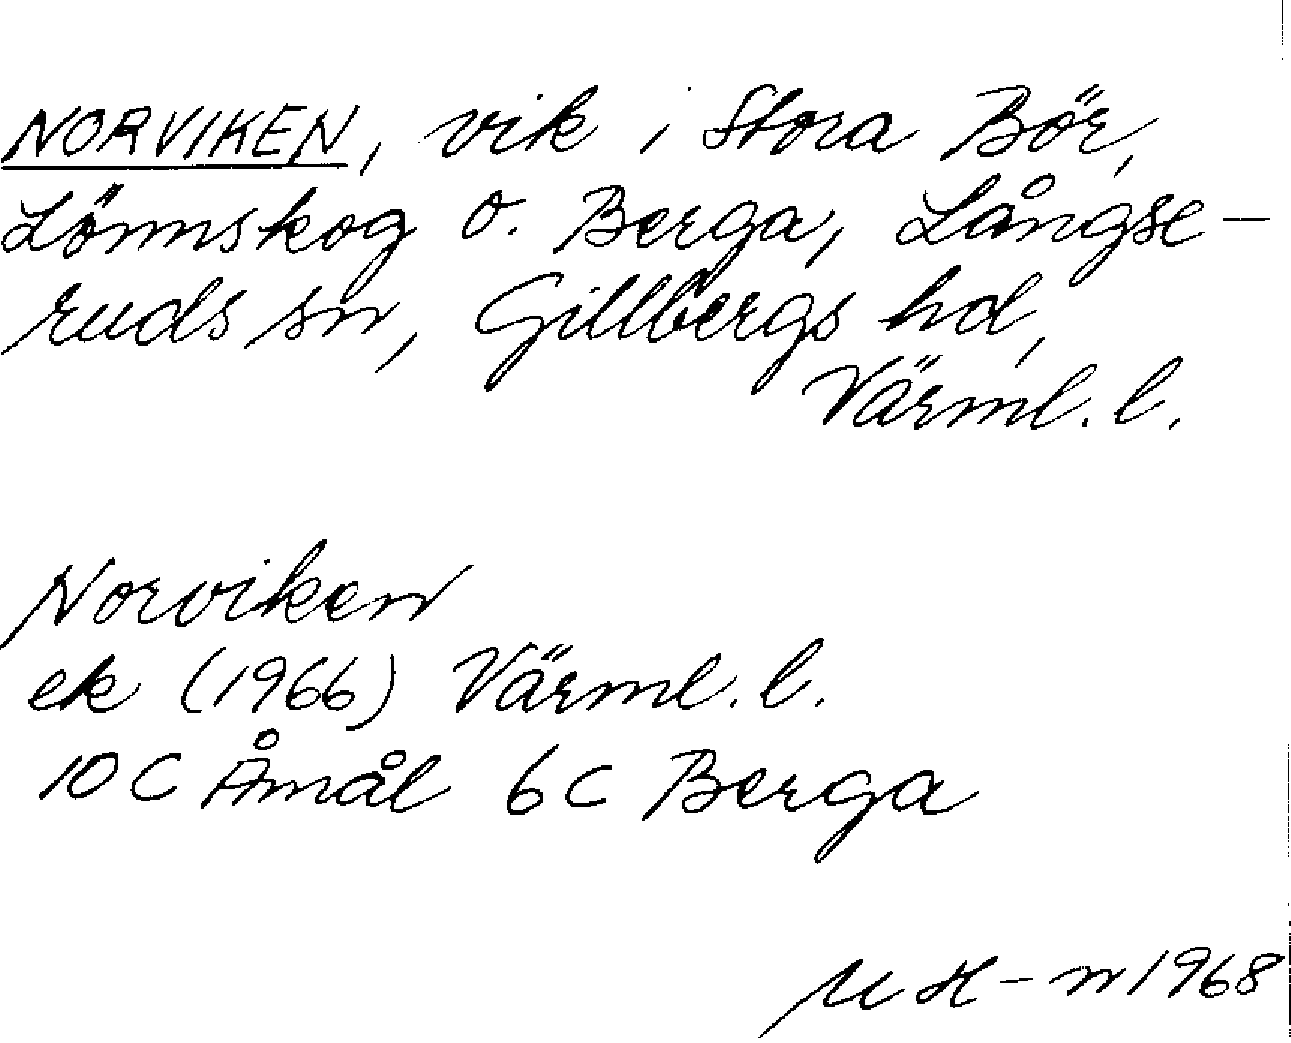 NORVIKEN, vik i Stora Bör,
Lönnskog o. Berga, Långse-
ruds sn, Gillbergs hd,
Värml. l.
Norviken
ek (1966) Värml. l.
10 C Åmål 6 C Berga
M H-n 1968